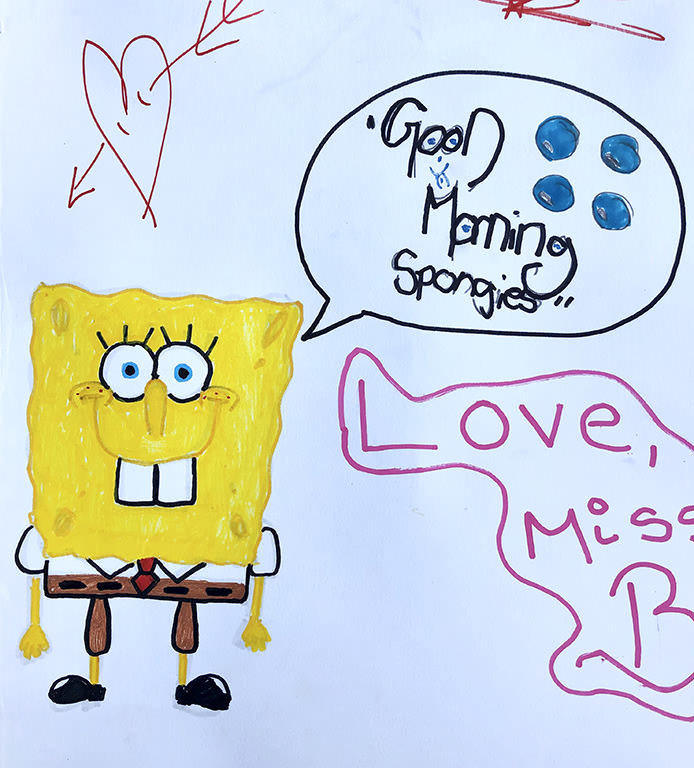 "Good
Morning
Spongies"
Love,
Miss
B